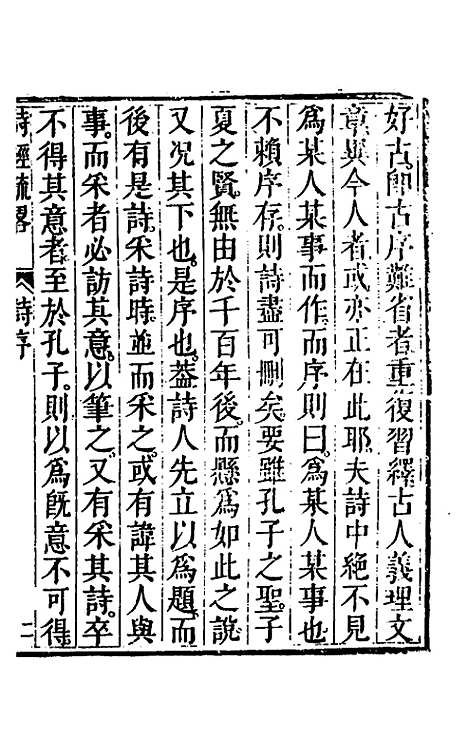 好古即古序難省者重復習繹古人義理文
章異今人者或亦正在此耶夫詩中絶不見
爲某人某事而作而序則曰爲某人某事也
不賴序存則詩盡可刪矣要雖孔子之聖子
夏之賢無由於千百年後而懸爲如此之說
又況其下也是序也葢詩人先立以爲題而
後有是詩采詩時並而采之或有諱其人與
事而采者必訪其意以筆之又有采其詩卒
不得其意者至於孔子則以爲旣意不可得
詩經疏畧 詩序 二